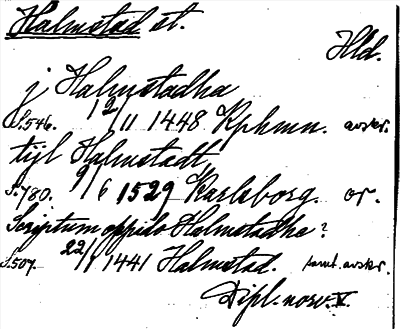 Halmstad st.
Hld.
j Halmstadha
S.546. 12/11 1448 Kphmn. avskr.
tijl Halmstadt,
S.780. 9/6 1529 Karlsborg. or.
Scriptum oppido Halmstadhe?
S.507. 22/1 1441 Halmstad. samt. avskr.
Dipl. norv. V.